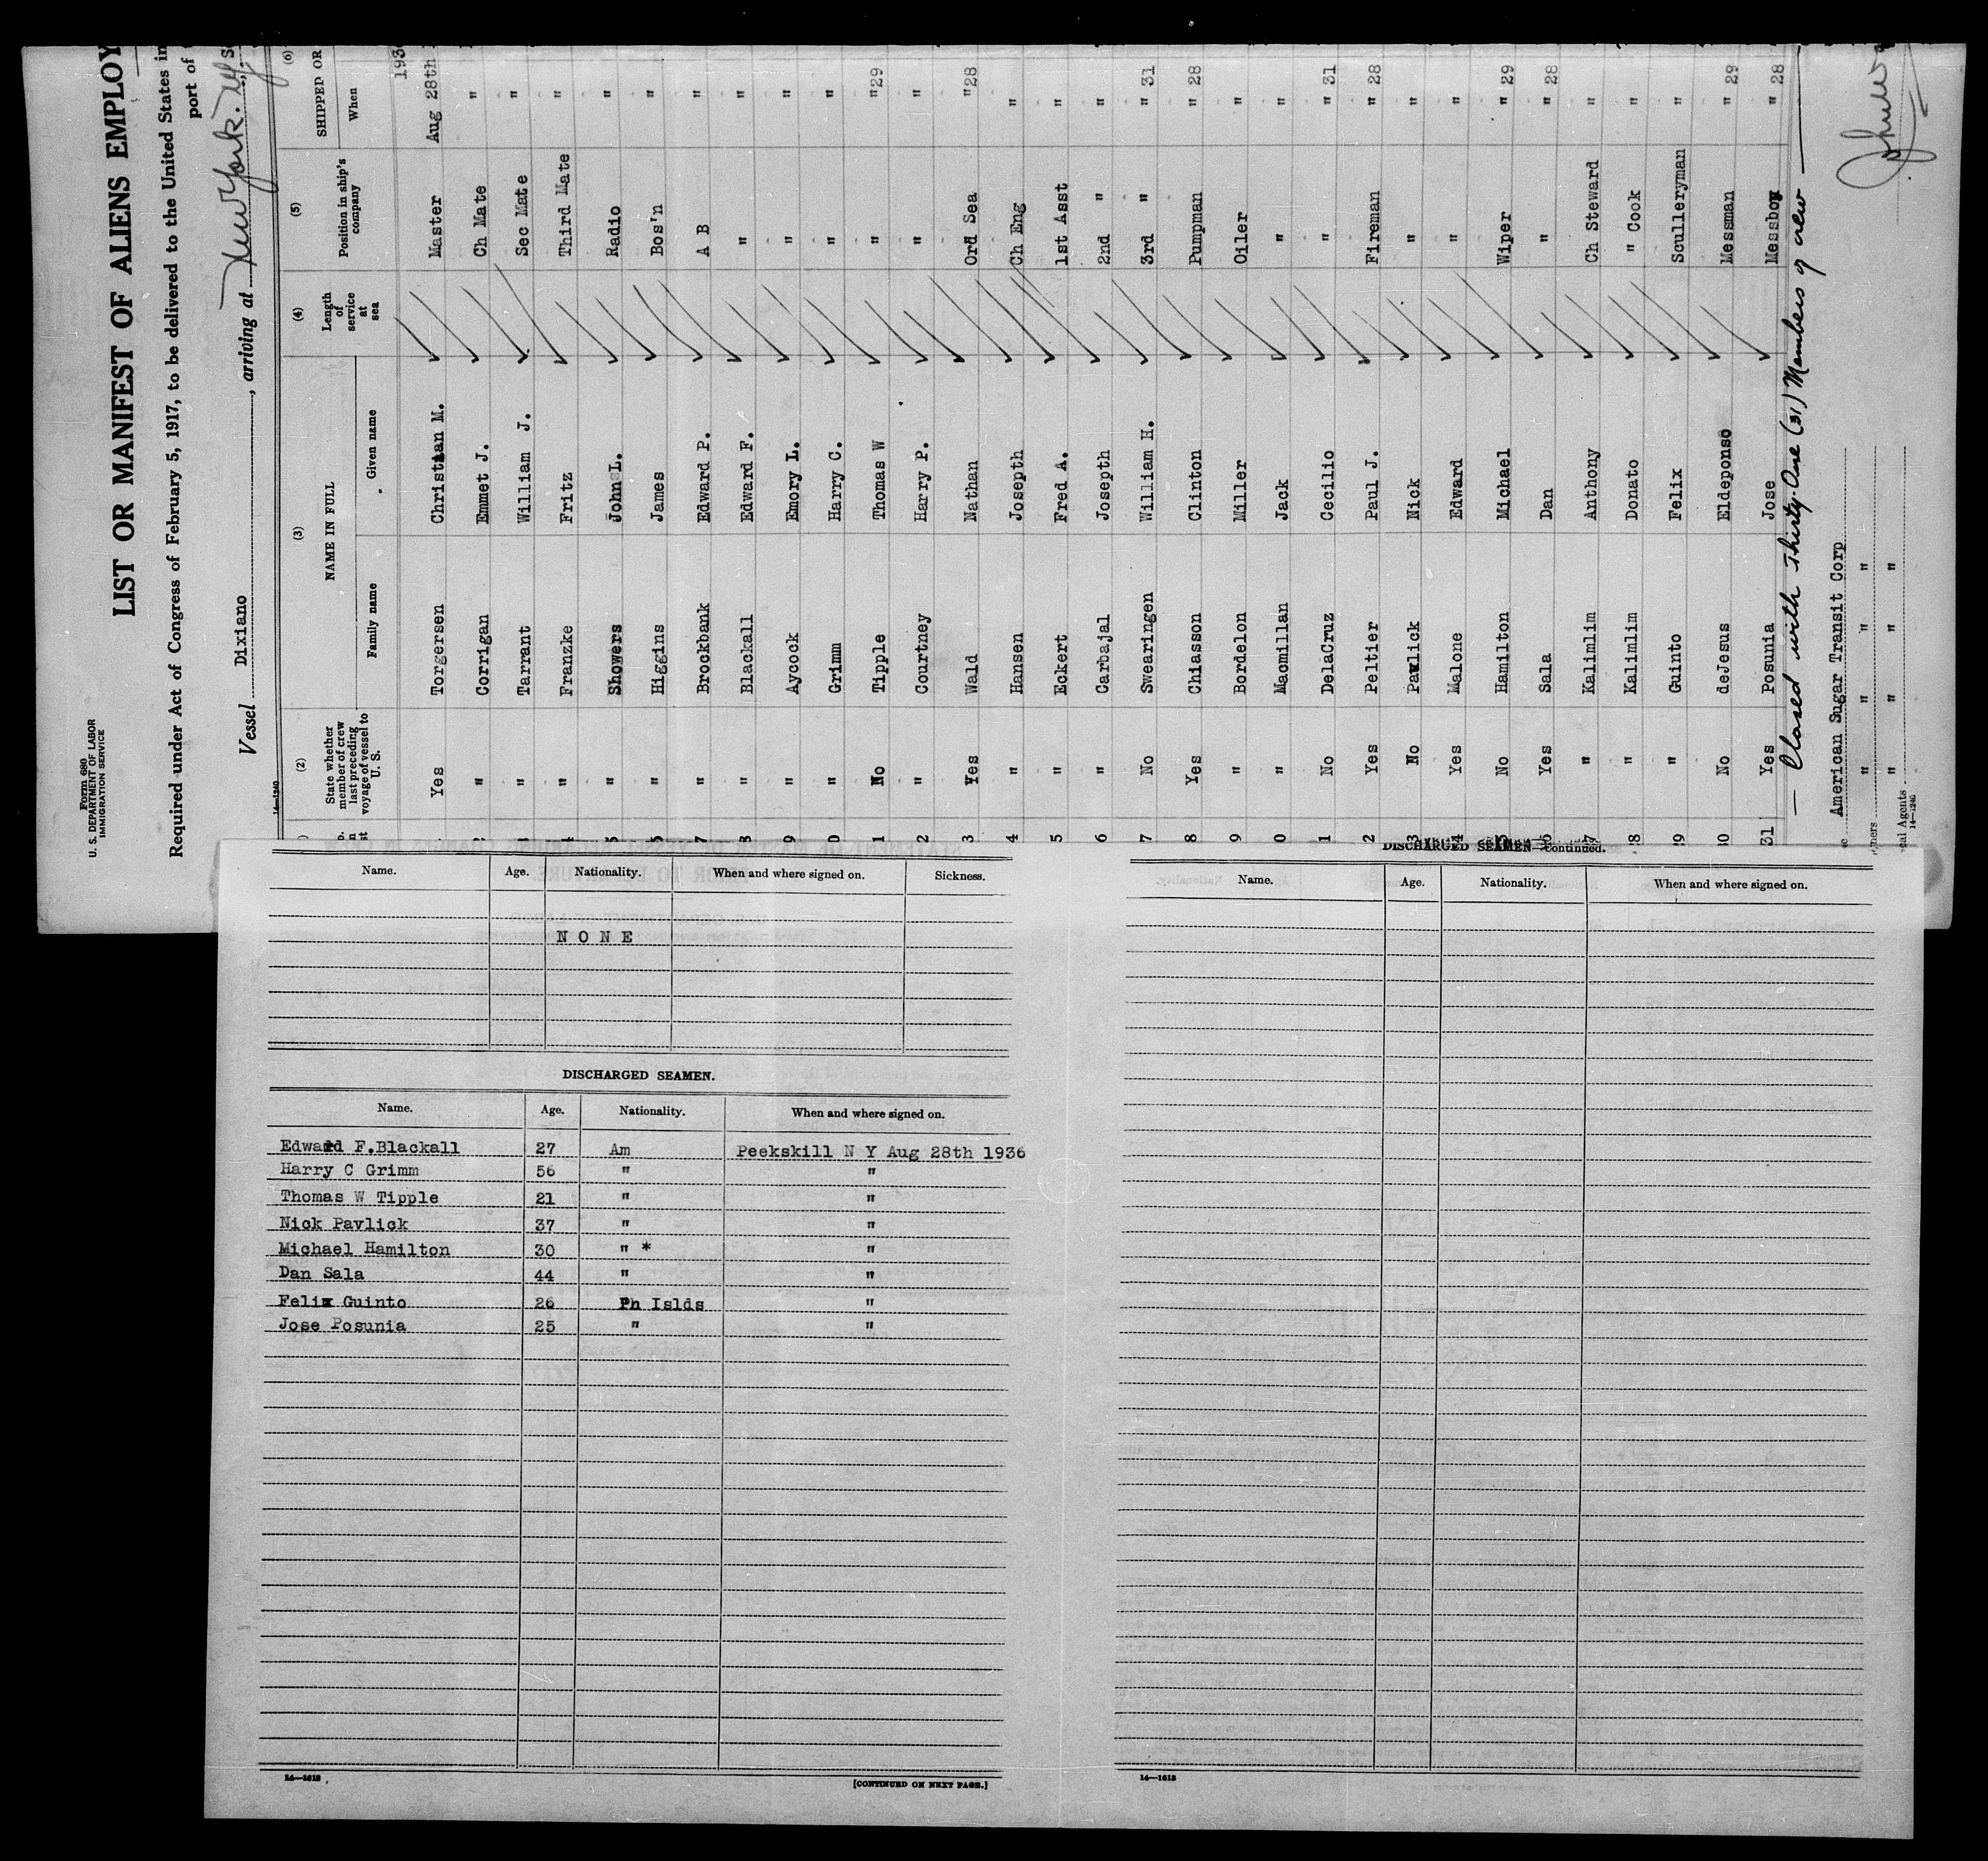 Form 680
U. S. DEPARTMENT OF LABOR
IMMIGRATION SERVICE
LIST OR MANIFEST OF ALIENS EMPLOY
Required under Act of Congress of February 5, 1917, to be delivered to the United States in
port of
Vessel Dixiano, arriving at New York.
14—1240
(2) (3) (4) (5) (6)
State whether member of crew last preceding voyage of vessel to U. S. NAME IN FULL Length of service at sea Position in ship's company SHIPPED OR
Family name Given name When
193
Yes Torgersen Christian M. Master Aug 28th
2 " Corrigan Emmet J. Ch Mate "
3 " Tarrant William J. Sec Mate "
4 " Franzke Fritz Third Mate "
5 " Showers John L. Radio "
6 " Higgins James Bos'n "
7 " Brockbank Edward P. A B "
8 " Blackall Edward F. " "
9 " Aycock Emory L. " "
0 " Grimm Harry C. " "
1 No Tipple Thomas W " "29
2 " Courtney Harry P. " "
3 Yes Wald Nathan Ord Sea "28
4 " Hansen Josepth Ch Eng "
5 " Eckert Fred A. 1st Asst "
6 " Carbajal Josepth 2nd " "
7 No Swearingen William H. 3rd " " 31
8 Yes Chiasson Clinton Pumpman " 28
9 " Bordelon Miller Oiler "
0 " Macmillan Jack " "
1 No DelaCruz Cecilio " " 31
2 Yes Peltier Paul J. Fireman " 28
3 No Pavlick Nick " "
4 Yes Malone Edward " "
5 No Hamilton Michael Wiper " 29
6 Yes Sala Dan " " 28
7 " Kalimlim Anthony Ch Steward "
8 " Kalimlim Donato " Cook "
9 " Guinto Felix Sculleryman "
30 No deJesus Eldeponso Messman " 29
31 Yes Posunia Jose Messboy " 28
— Closed with Thirty-One (31) Members of crew —
American Sugar Transit Corp
" " " "
" " " "
Agents
14—1240
Name. Age. Nationality. When and where signed on. Sickness.
NONE
DISCHARGED SEAMEN.
Name. Age. Nationality. When and where signed on.
Edward F.Blackall 27 Am Peekskill N Y Aug 28th 1936
Harry C Grimm 56 " "
Thomas W Tipple 21 " "
Nick Pavlick 37 " "
Michael Hamilton 30 " * "
Dan Sala 44 " "
Felix Guinto 26 Ph Islds "
Jose Posunia 25 " "
14—1613
[CONTINUED ON NEXT PAGE.]
DISCHARGED SEAMEN—Continued.
Name. Age. Nationality. When and where signed on.
14—1613